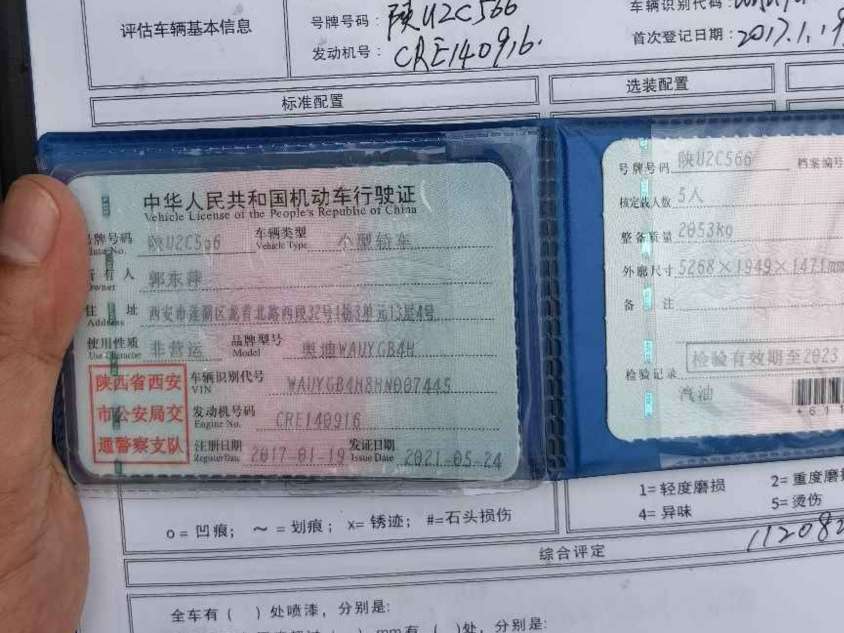 评估车辆基本信息
号牌号码: 陕U2C566
车辆识别代码:
发动机号: CRE140916.
首次登记日期: 2017.1.19
标准配置
选装配置
中华人民共和国机动车行驶证
Vehicle License of the People's Republic of China
号牌号码 陕U2C566 车辆类型 小型轿车
Plate No. Vehicle Type
所有人 郭东萍
Owner
住 址 西安市莲湖区龙首北路西段32号1栋3单元13层4号
Address
使用性质 非营运 品牌型号 奥迪WAUYGB4H
Use Character Model
陕西省西安
市公安局交
通警察支队
车辆识别代号 WAUYGB4H8HN007445
VIN
发动机号码 CRE140916
Engine No.
注册日期 2017-01-19 发证日期 2021-05-24
Register Date Issue Date
号牌号码 陕U2C566 档案编号
核定载人数 5人
整备质量 2053kg
外廓尺寸 5268×1949×1471mm
备 注
检验有效期至2023
检验记录
汽油
*611
o= 凹痕; ~ = 划痕; x= 锈迹; #=石头损伤
1= 轻度磨损
2= 重度磨损
4= 异味
5= 烫伤
综合评定
112082
全车有 ( ) 处喷漆, 分别是:
mm有 ( )处, 分别是: